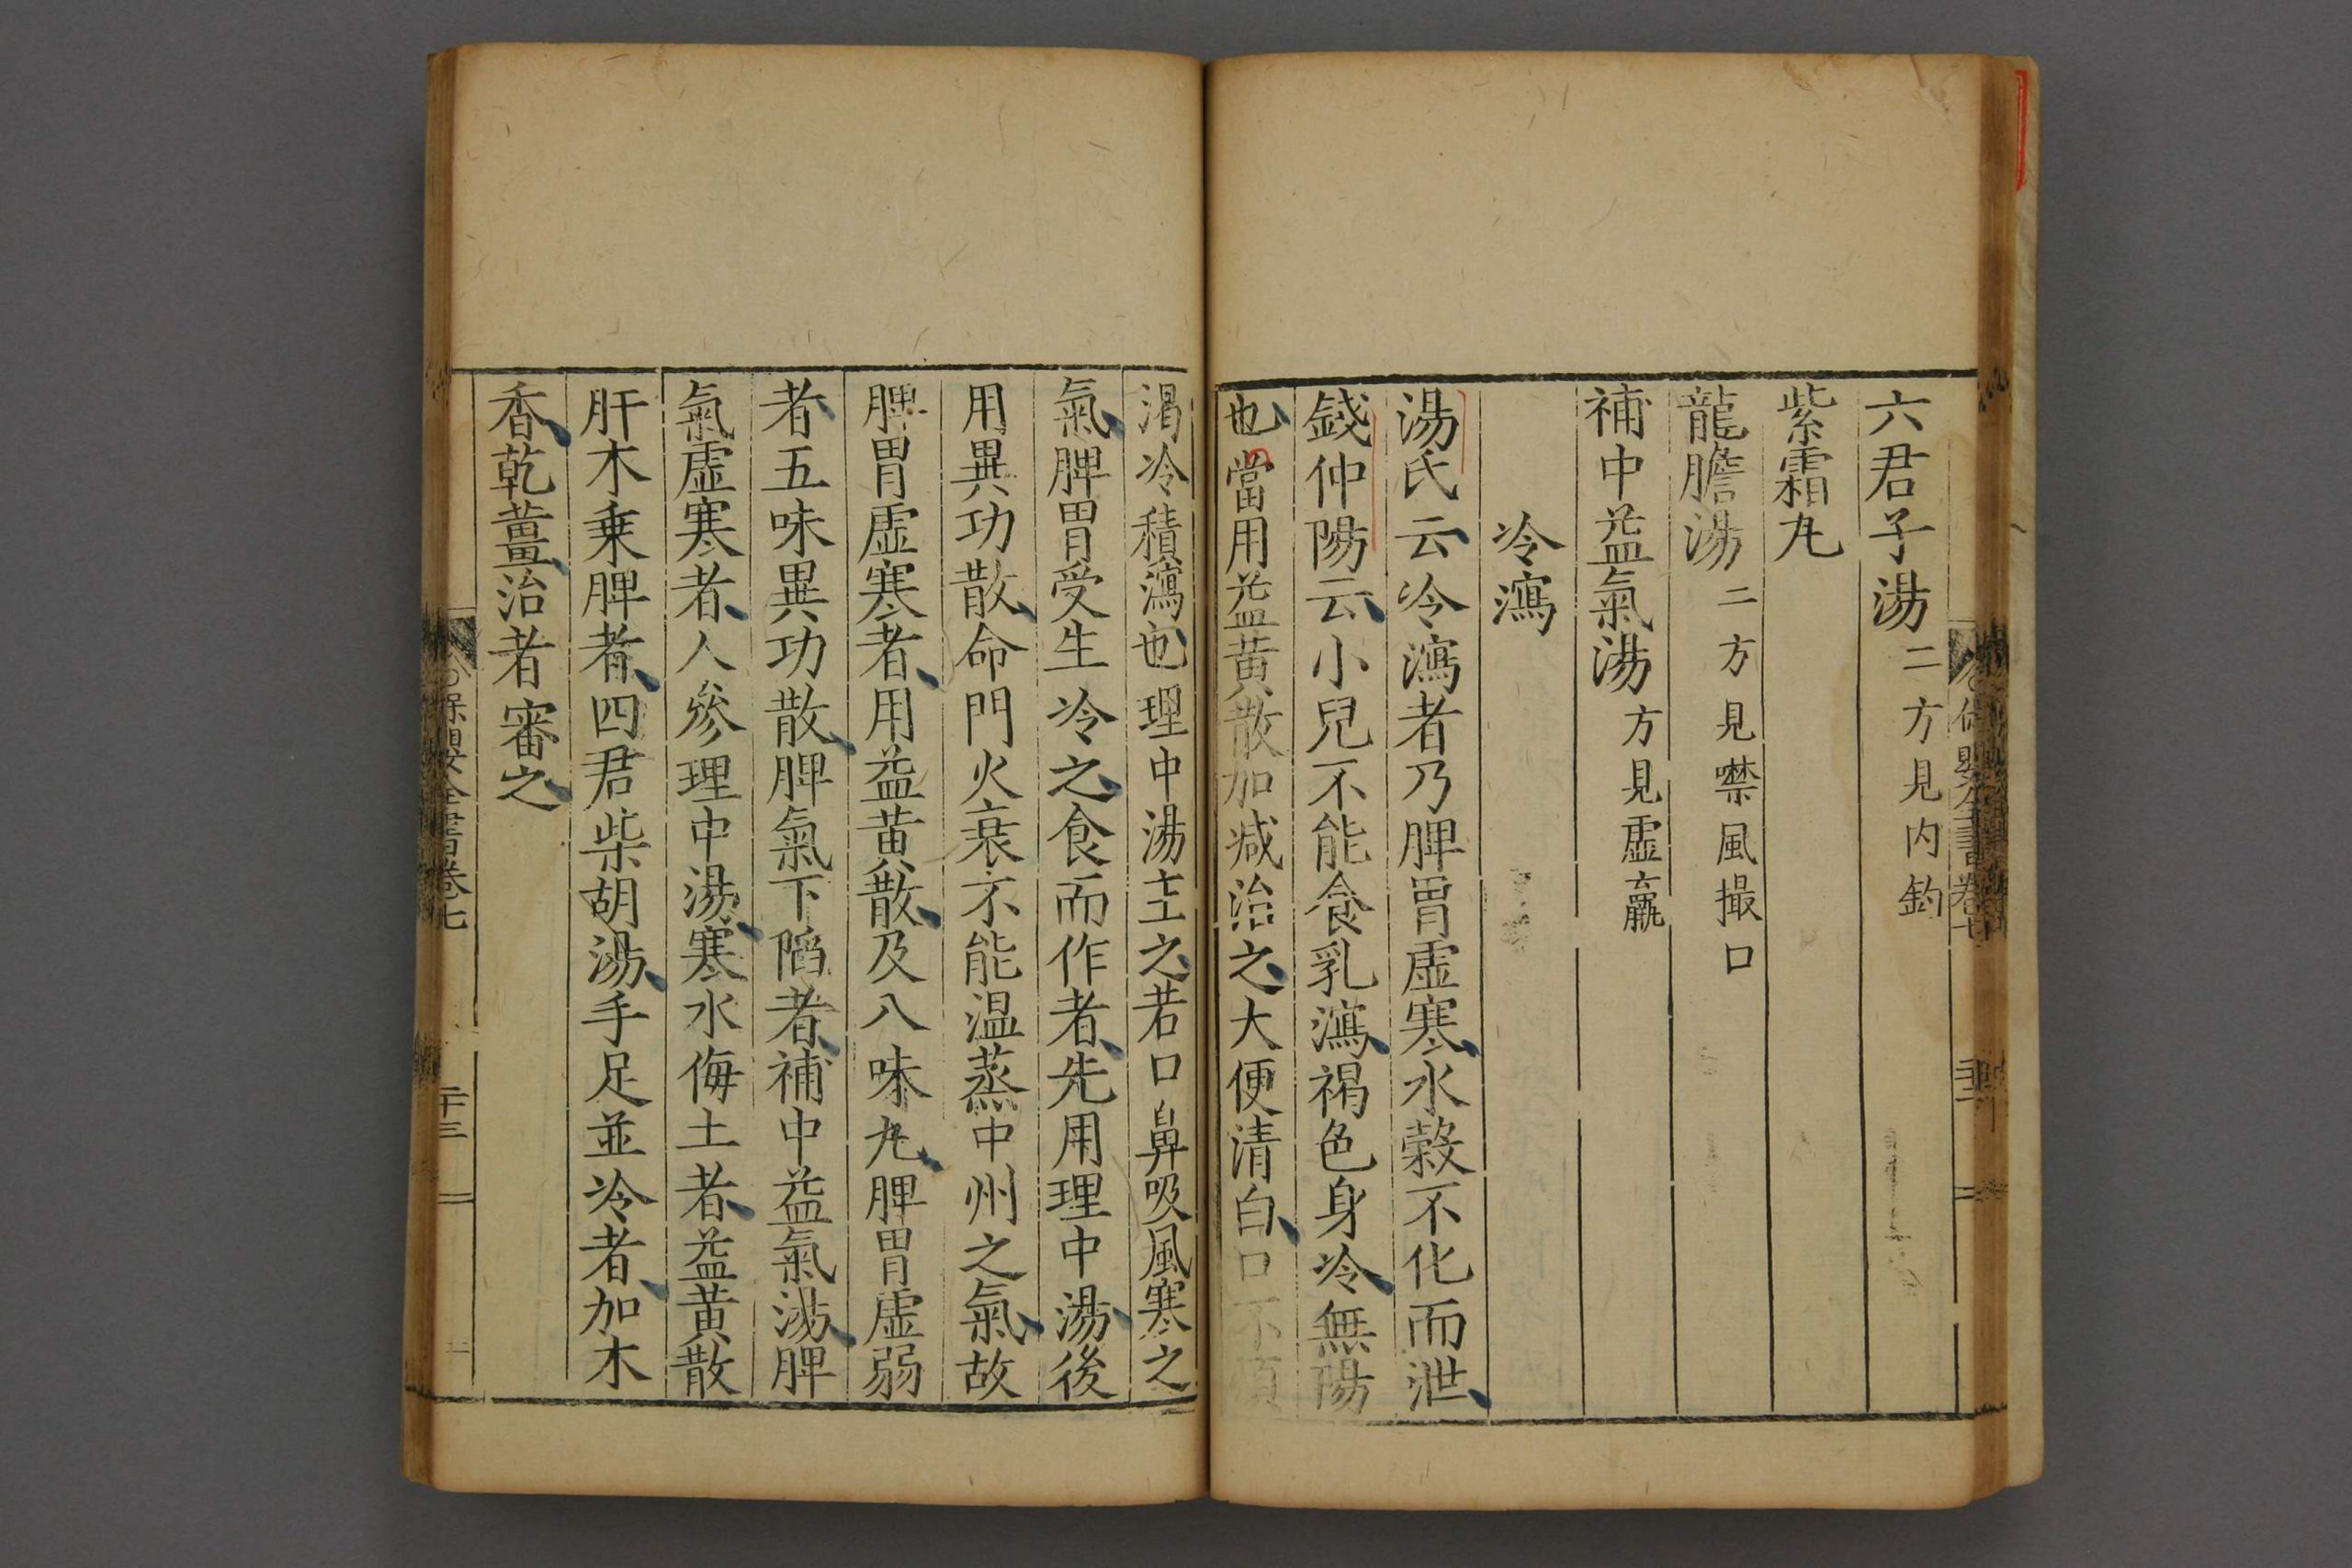 六君子湯二方見內釣
紫霜丸
龍膽湯二方見噤風撮口
補中益氣湯方見虛羸
冷瀉
湯氏云冷瀉者乃脾胃虛寒水榖不化而泄
錢仲陽云小兒不能食乳瀉褐色身冷無陽
也當用益黃散加减治之大便清白口不煩
渴冷積瀉也理中湯主之若口鼻吸風寒之
氣脾胃受生冷之食而作者先用理中湯後
用異功散命門火衰不能温蒸中州之氣故
脾胃虛寒者用益黃散及八味丸脾胃虛弱
者五味異功散脾氣下陷者補中益氣湯脾
氣虛寒者人參理中湯寒水侮土者益黃散
肝木乗脾者四君柴胡湯手足並冷者加木
香乾薑治者審之
保嬰全書卷七
二十三